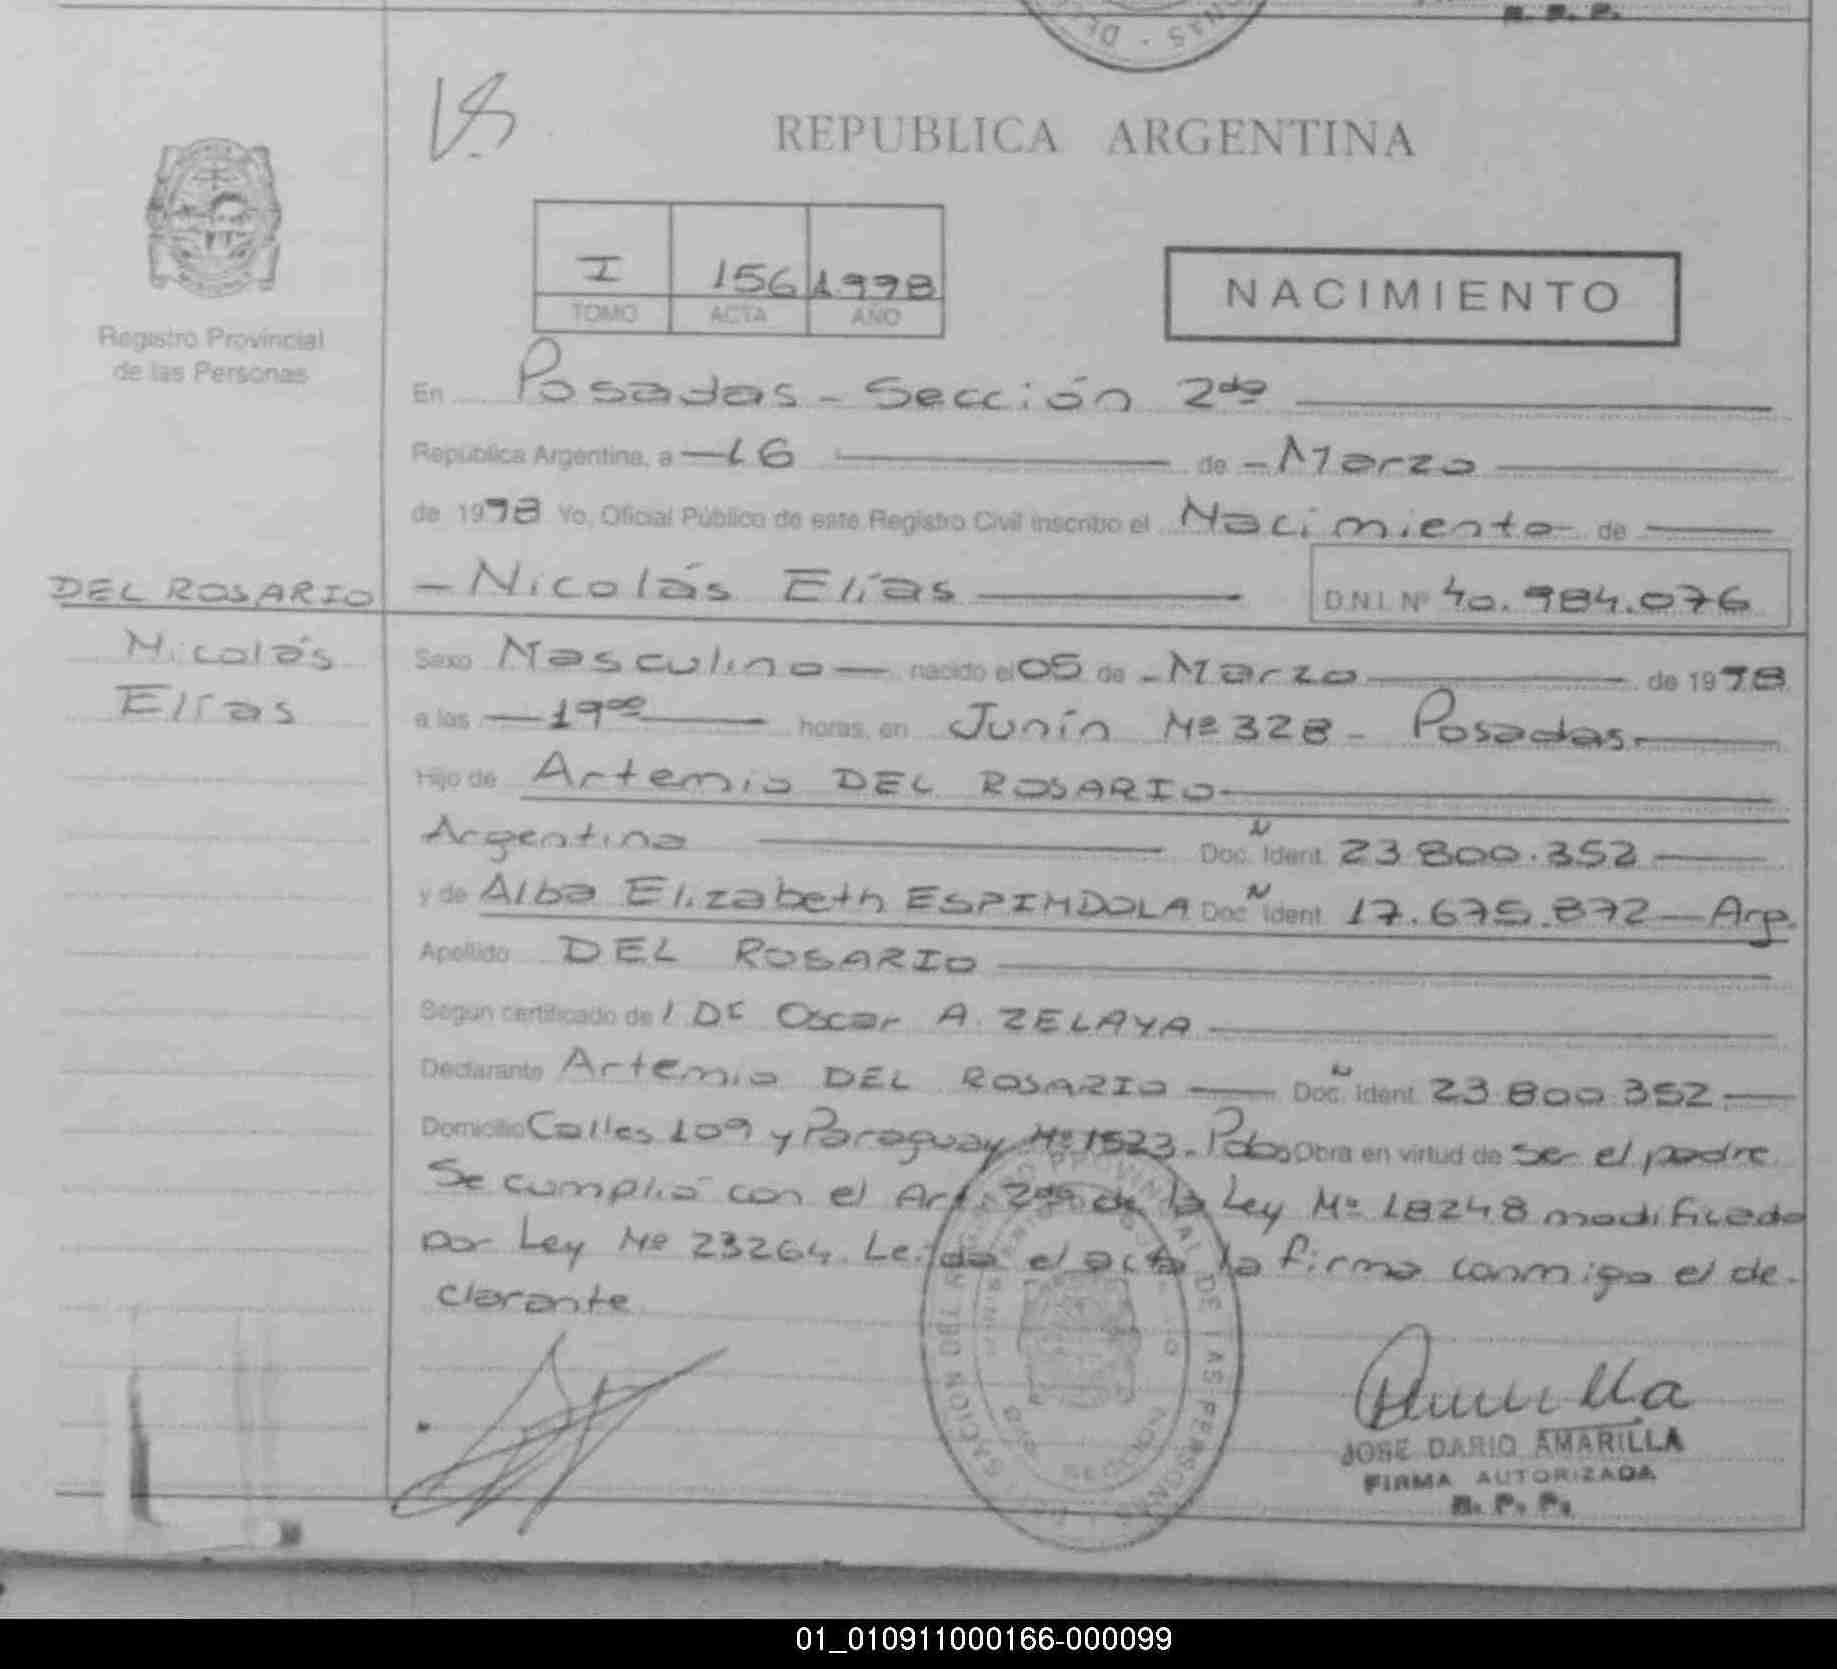 REPUBLICA ARGENTINA
I 156 1998
TOMO ACTA AÑO
NACIMIENTO
Registro Provincial
de las Personas
En Posadas - Sección 2da
República Argentina, a -16 de - Marzo
de 1998 Yo, Oficial Público de este Registro Civil inscribo el Nacimiento de
DEL ROSARIO
Nicolás
Elías
- Nicolás Elías D.N.I. Nº 40.984.076
Sexo Masculino - nacido el 05 de - Marzo de 1998
a las - 19ºº horas, en Junín Nº 328 - Posadas.
Hijo de Artemio DEL ROSARIO
Argentino Doc. Ident. 23.800.352
y de Alba Elizabeth ESPINDOLA Doc. Ident. 17.675.872 - Arg.
Apellido DEL ROSARIO
Según certificado de / Dr Oscar A. ZELAYA
Declarante Artemio DEL ROSARIO Doc. Ident. 23.800.352
Domicilio Calles 109 y Paraguay Nº 1523 - Pdas Obra en virtud de ser el padre
Se cumplió con el Art. 2do de la Ley Nº 18248 modificado
por Ley Nº 23264. Leída el acta la firma conmigo el de-
clarante
JOSE DARIO AMARILLA
FIRMA AUTORIZADA
R. P. P.
01_010911000166-000099